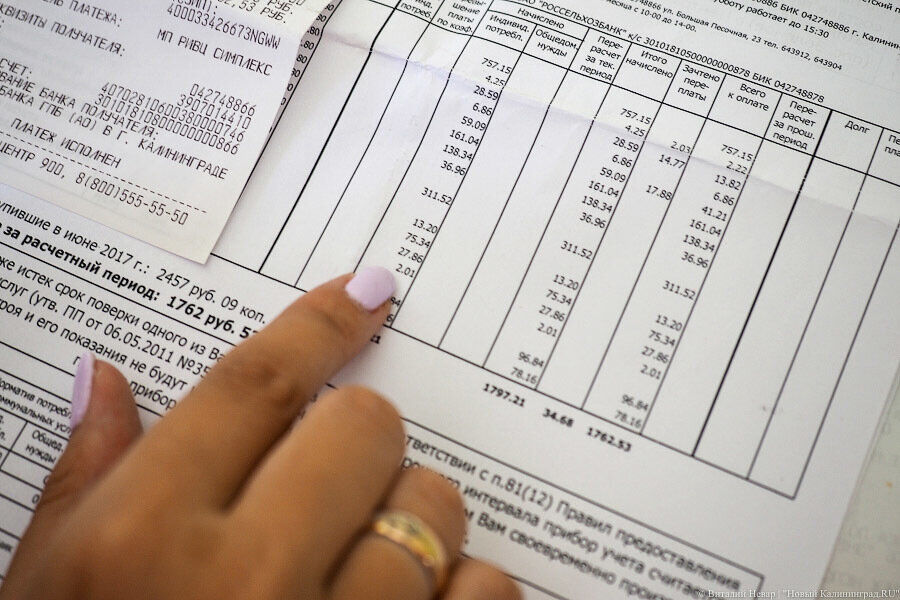 ЕЛЬ ПЛАТЕЖА:
4000033426673NGWW
КВИЗИТЫ ПОЛУЧАТЕЛЯ:
МП РИВЦ СИМПЛЕКС
СЧЕТ:
042748866
3907014470
40702810600380000740
30101810800000000866
БАНКА ПОЛУЧАТЕЛЯ:
БАНКА ГПБ (АО) В Г. КАЛИНИНГРАДЕ
ПЛАТЕЖ ИСПОЛНЕН
ЦЕНТР 900, 8(800)555-55-50
БИК 042748866 г. Калинин
боту работает до 15:30
ул. Большая Песочная, 23 тел. 643912, 643904
месяца с 10-00 до 14-00.
"РОССЕЛЬХОЗБАНК" к/с 30101810500000000878 БИК 042748878
потреб.
шение платы по коэф.
Начислено
Индивид. потребл.
Общедом. нужды
Пере- расчет за тек. период
Итого начислено
Зачтено пере- платы
Всего к оплате
Пере- расчет за прош. период
Долг
757.15 757.15 757.15
4.25 4.25 2.03 2.22
28.59 28.59 14.77 13.82
6.86 6.86 6.86
59.09 59.09 17.88 41.21
161.04 161.04 161.04
138.34 138.34 138.34
36.96 36.96 36.96
311.52 311.52 311.52
13.20 13.20 13.20
75.34 75.34 75.34
27.86 27.86 27.86
2.01 2.01 2.01
96.84 96.84
78.16 78.16
1797.21 34.68 1762.53
упившие в июне 2017 г.: 2457 руб. 09 коп.
за расчетный период: 1762 руб. 5
же истек срок поверки одного из Ва
слуг (утв. ПП от 06.05.2011 №35
троя и его показания не будут
прибор
Общед. нужды
тветствии с п.81(12) Правил предоставления
интервала прибор учета считае
м Вам своевременно произ
© Виталий Невар | "Новый Калининград.RU"